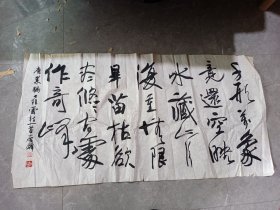 千形万象
竟還空映
水藏山片
復重無限
旱苗枯欲
尽悠闲處
作奇峰